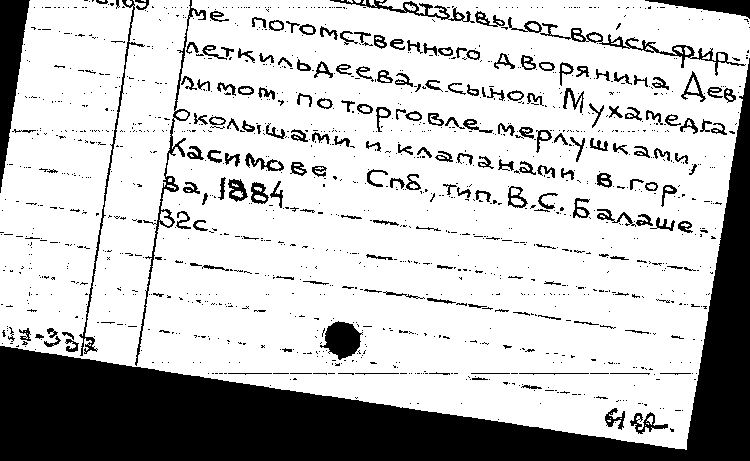 отзывы от войск фир-
ме потомственного дворянина Дев-
леткильдеева, с сыном Мухамедга-
лимом, по торговле мерлушками,
околышами и клапанами в гор.
Касимове. Спб., тип. В.С. Балаше-
ва, 1884
32с.